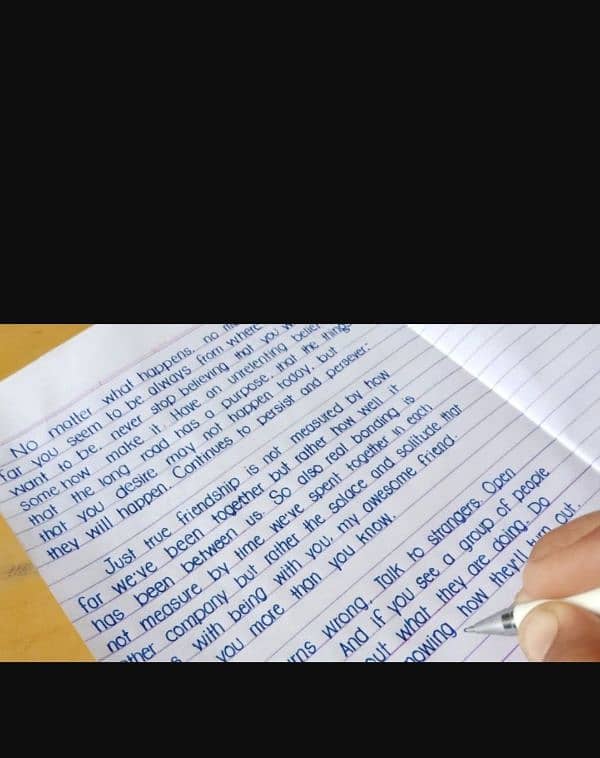 No matter what happens, no
far you seem to be always from where
want to be, never stop believing that you
some how make it. Have an unrelenting belief
that the long road has a purpose, that the things
that you desire may not happen today, but
they will happen. Continues to persist and persever:
Just true friendship is not measured by how
far we've been together but rather how well it
has been between us. So also real bonding is
not measure by time we've spent together in each
other company but rather the solace and solitude that
with being with you, my awesome friend.
you more than you know.
wrong. Talk to strangers. Open
And if you see a group of people
out what they are doing. Do
how they'll turn out.